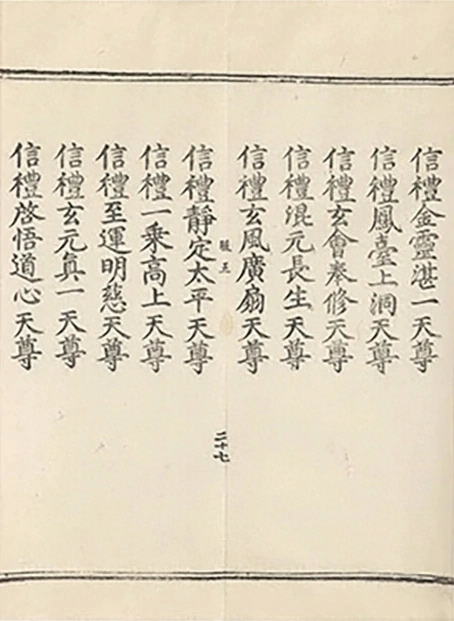 信禮金靈湛一天尊
信禮鳳臺上洞天尊
信禮玄會奉修天尊
信禮混元長生天尊
信禮玄風廣扇天尊
二十七
信禮靜定太平天尊
信禮一乘高上天尊
信禮至運明慈天尊
信禮玄元真一天尊
信禮啓悟道心天尊